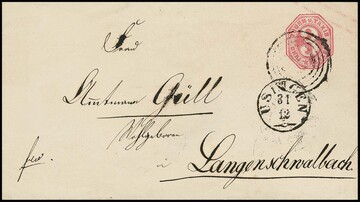 Frau
Amtmann Güll
Wohlgeboren
frei.
in
Langenschwalbach.
USINGEN
31
12